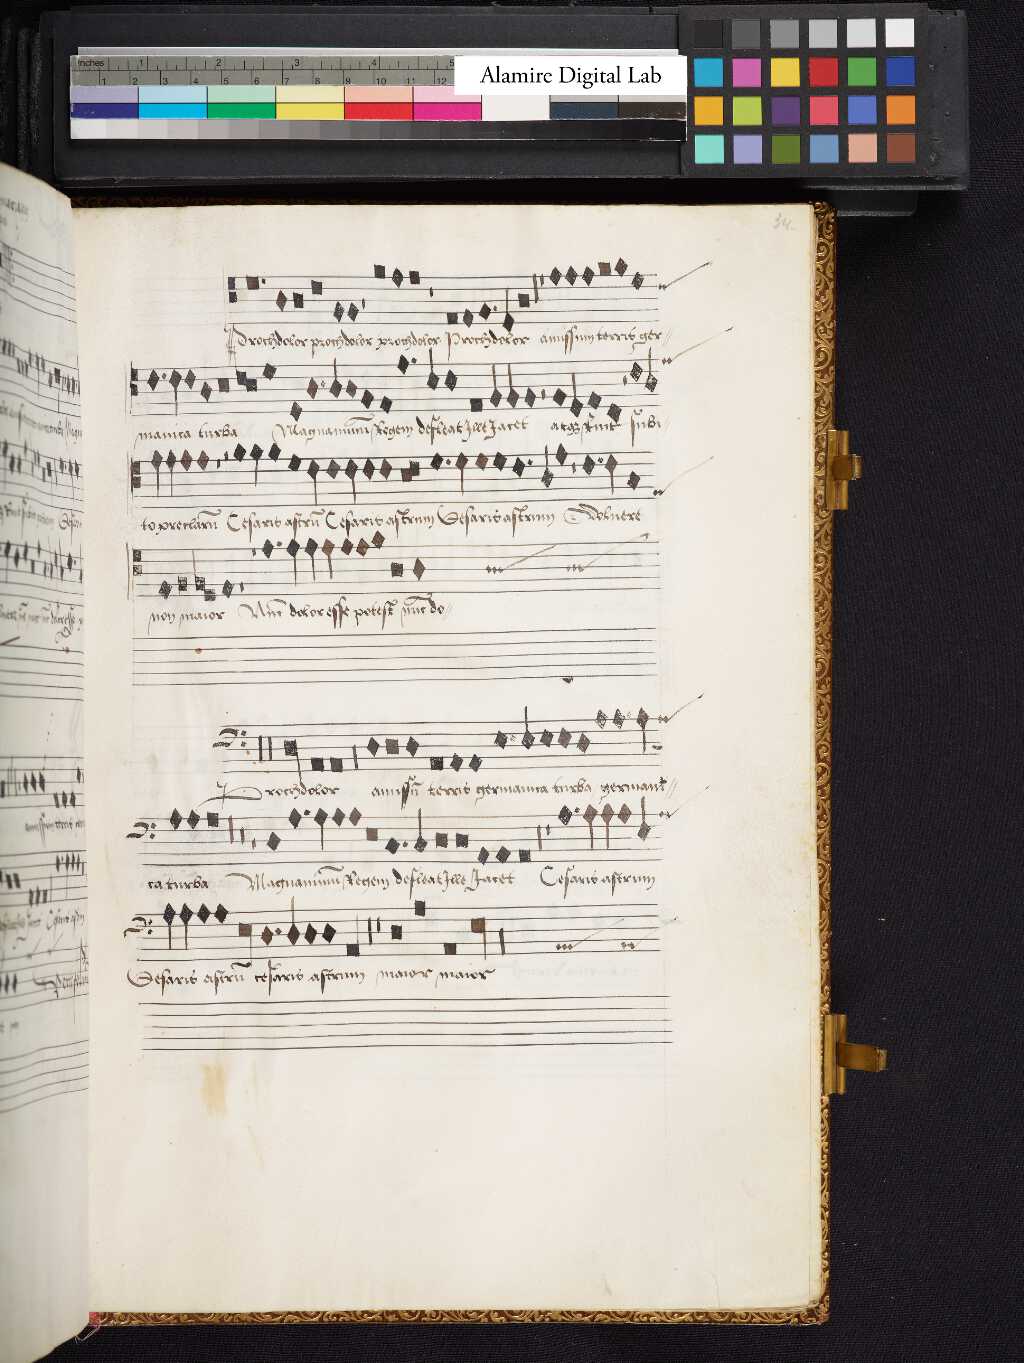 inches 1 2 3 4 5
1 2 3 4 5 6 7 8 9 10 11 12
Alamire Digital Lab
34.
Prochdolor prochdolor prochdolor Prochdolor amissum terris ger//
manica turba Magnanimū Regem defleat Ille Jacet atqȝ Ruit subi//
to preclarū Cesaris astrū Cesaris astrum Cesaris astrum Voluere
non maior Nūc dolor esse potest nūc do//
Prochdolor amissū terris germanica turba germani//
ca turba Magnanimū Regem defleat Ille Jacet Cesaris astrum
Cesaris astrū cesaris astrum maior maior